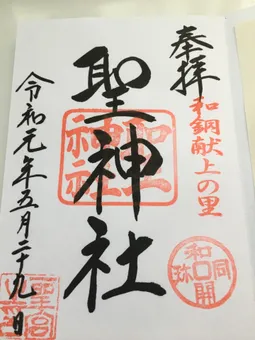 奉拝
和銅献上の里
聖神社
聖神社
和同開弥
令和元年五月二十九日